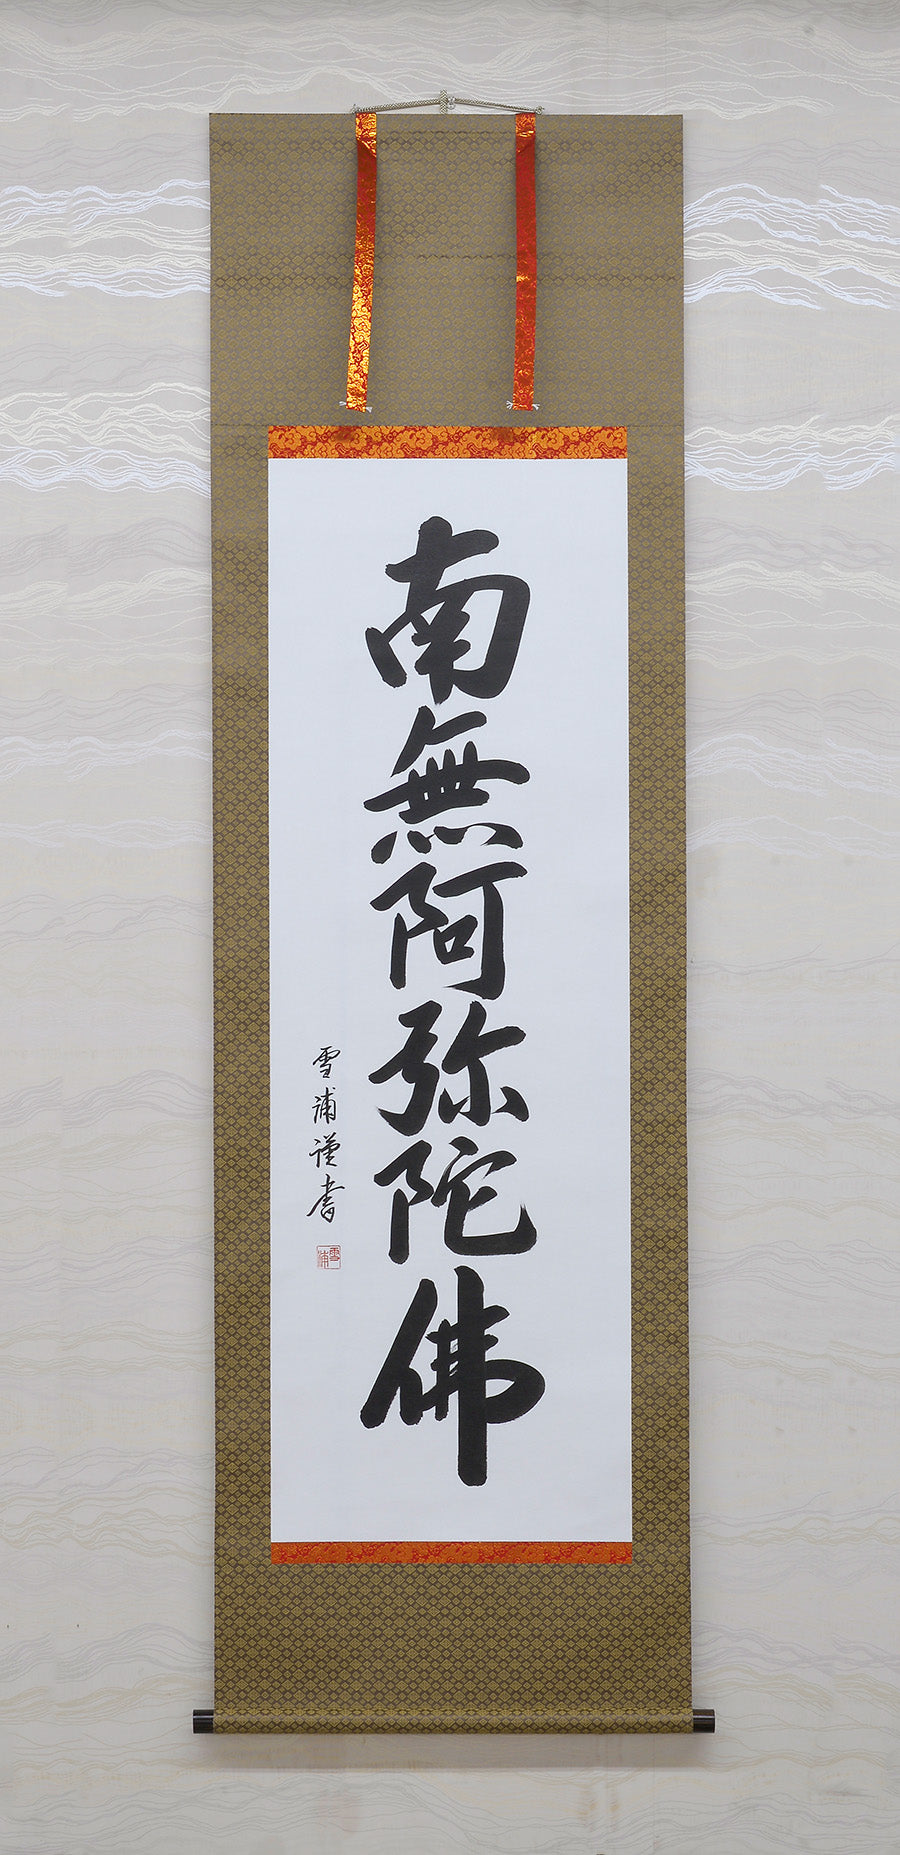 南無阿弥陀佛
雪浦謹書
雪浦